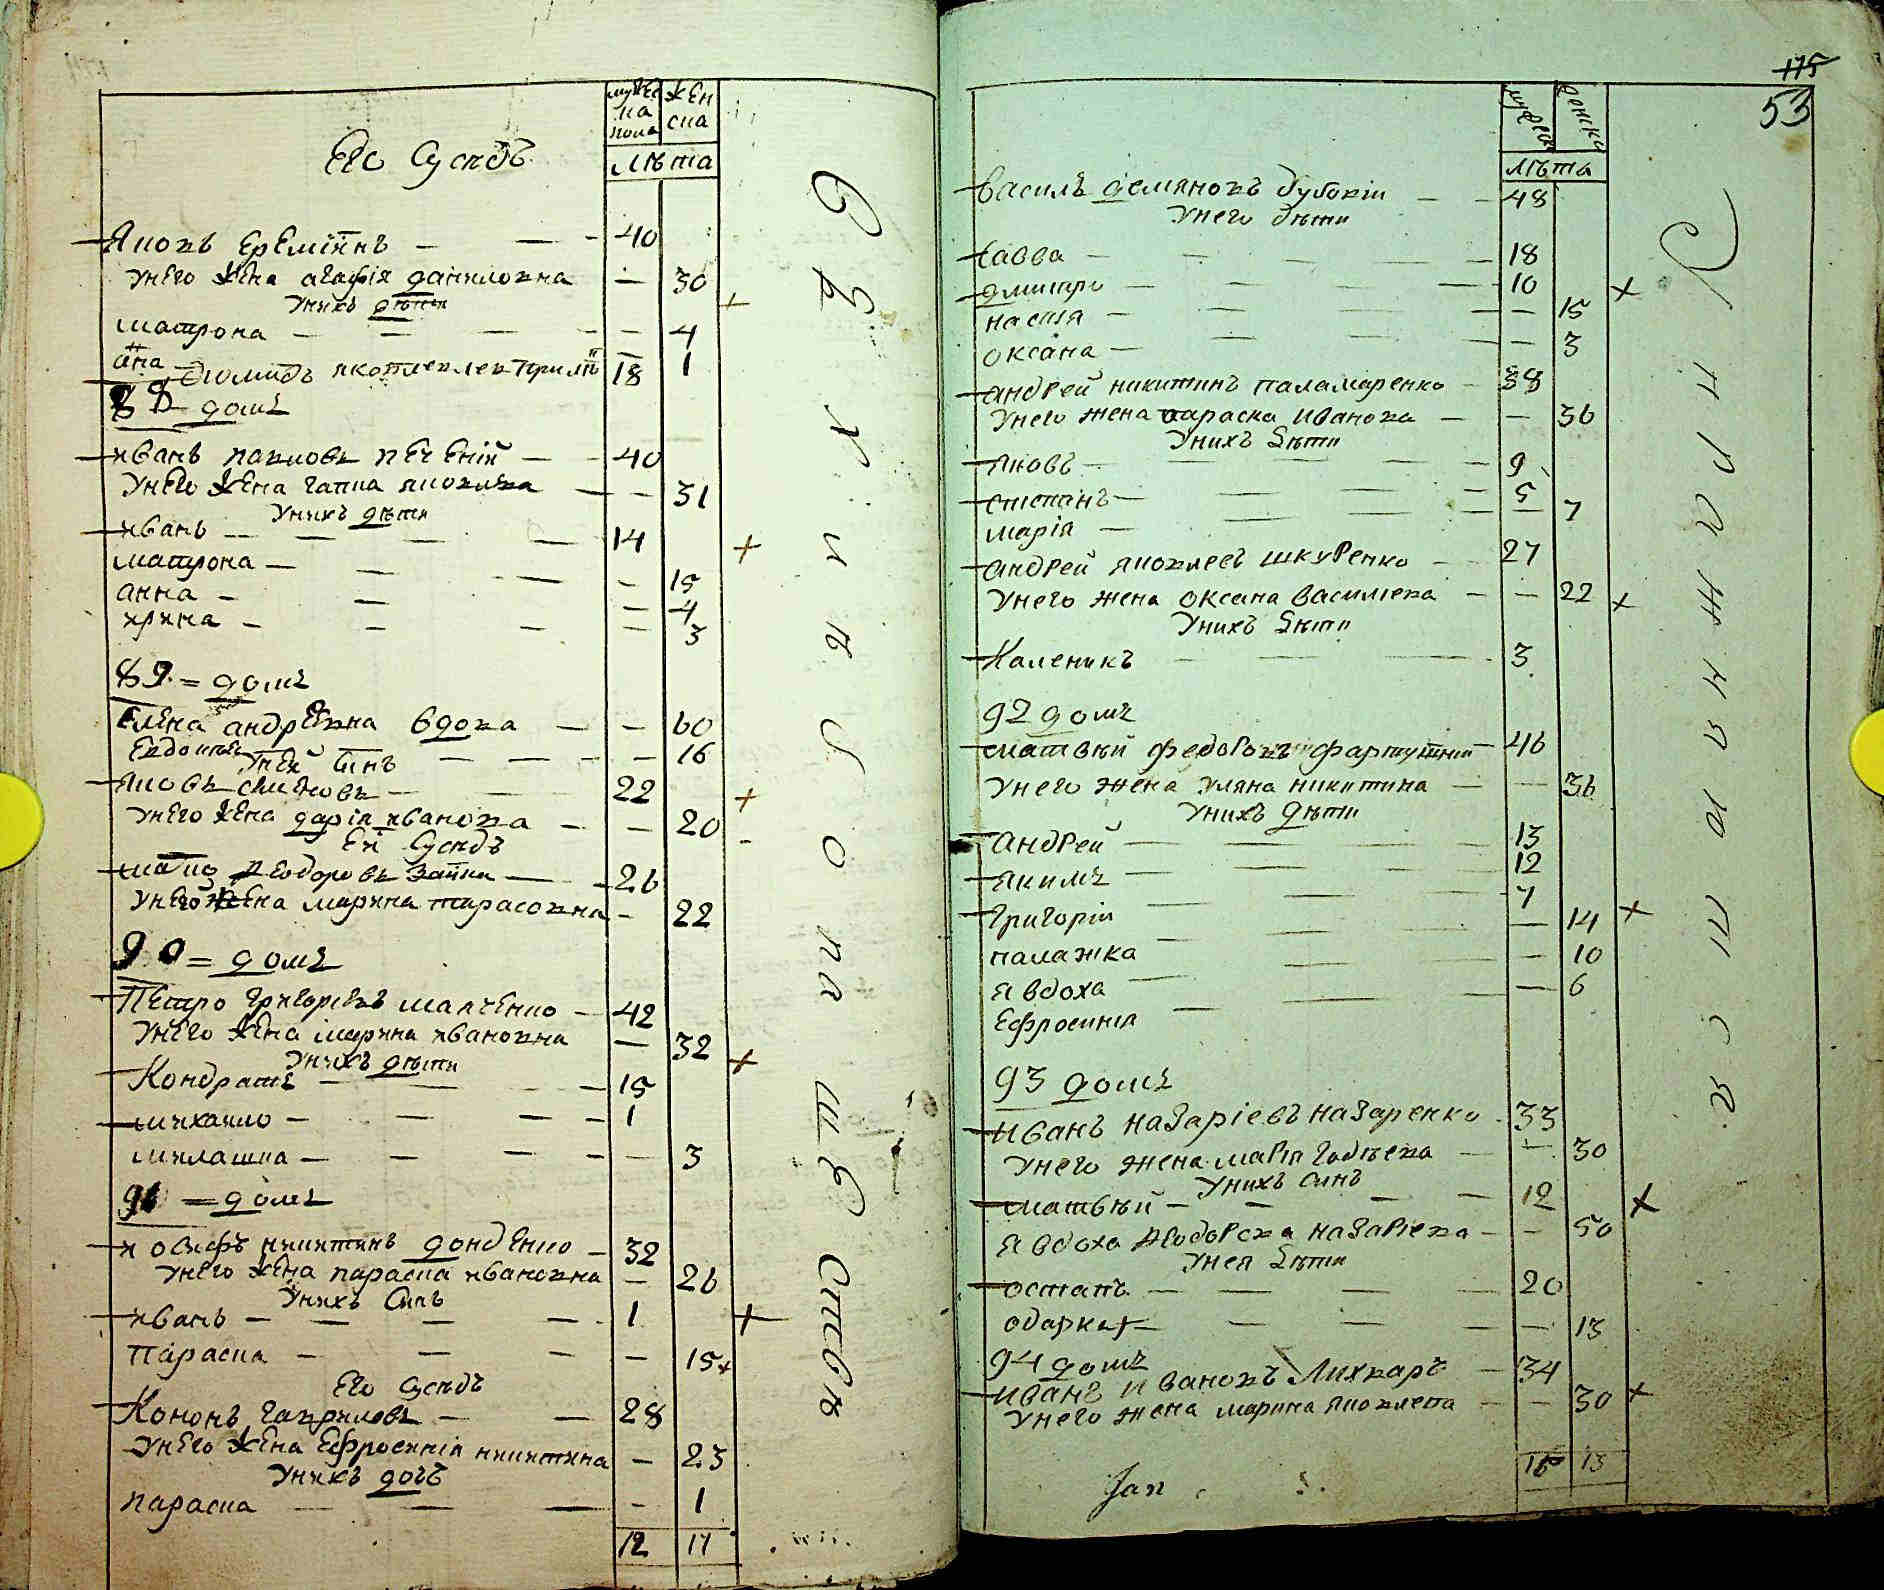 мужес ка пола
женска
лѣта
Его Сусѣдъ
Яковъ Ереминнъ — 40
Унего жена агафія даниловна — 30
Унихъ дѣти
матрона — 4
анна — 1
Яковлевъ 18
88 домъ
иванъ павловъ Печеній — 40
Унего жена гапка яковлева — 31
Унихъ дѣти
иванъ — 14
матрона — 15
анна — 4
ирина — 3
89 = домъ
Елена андреевна вдова — 60
Евдокия — 16
Уней синъ
Яковъ — 22
Унего жена дарія иванова — 20
Ей Сусѣдъ
Феодоровъ Заика — 26
Унего жена марина тарасовна — 22
90 = домъ
Петро григориевъ Малченко — 42
Унего жена марина ивановна — 32
Унихъ дѣти
Кондратъ — 15
михаило — 1
милашка — 3
91 = домъ
иосифъ никитинъ донденко — 32
Унего жена параска ивановна — 26
Унихъ Синъ
иванъ — 1
Параска — 15
Его Сусѣдъ
Кононъ гавриловъ — 28
Унего жена Ефросинія никитина — 23
Унихъ дочъ
параска — 1
12 17
175
53
мужеска
женска
лѣта
Василъ демяновъ дубовій — 48
Унего дѣти
Савва — 18
дмитро — 10
настя — 15
оксана — 3
андрей никитинъ паламаренко — 38
Унего жена параска Иванова — 36
Унихъ дѣти
яковъ — 9
степанъ — 5
марія — 7
андрей яковлевъ шкуренко — 27
Унего жена оксана василиева — 22
Унихъ дѣти
Каленикъ — 3
92 домъ
матвѣй федоровъ — 46
Унего жена уляна никитина — 36
Унихъ дѣти
Андрей — 13
якимъ — 12
григорій — 7
палажка — 14
явдоха — 10
Ефросинія — 6
93 домъ
Иванъ назаріевъ назаренко — 33
Унего жена марія — 30
Унихъ синъ
матвѣй — 12
явдоха назаріева — 50
Унея дѣти
остапъ — 20
одарка — 13
94 домъ
иванъ ивановъ Лихваръ — 34
Унего жена марина яковлева — 30
16 13